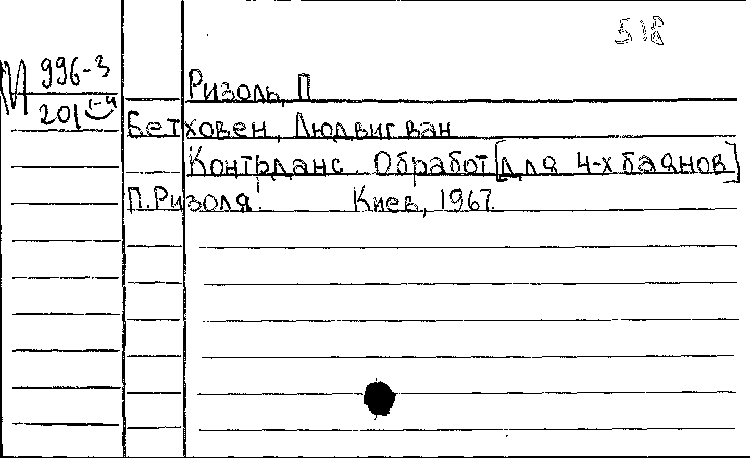 518
М 996-3
Ризоль, П
201 1-4
Бетховен, Людвиг ван
Контрданс. Обработ [для 4-х баянов]
П. Ризоля. Киев, 1967.